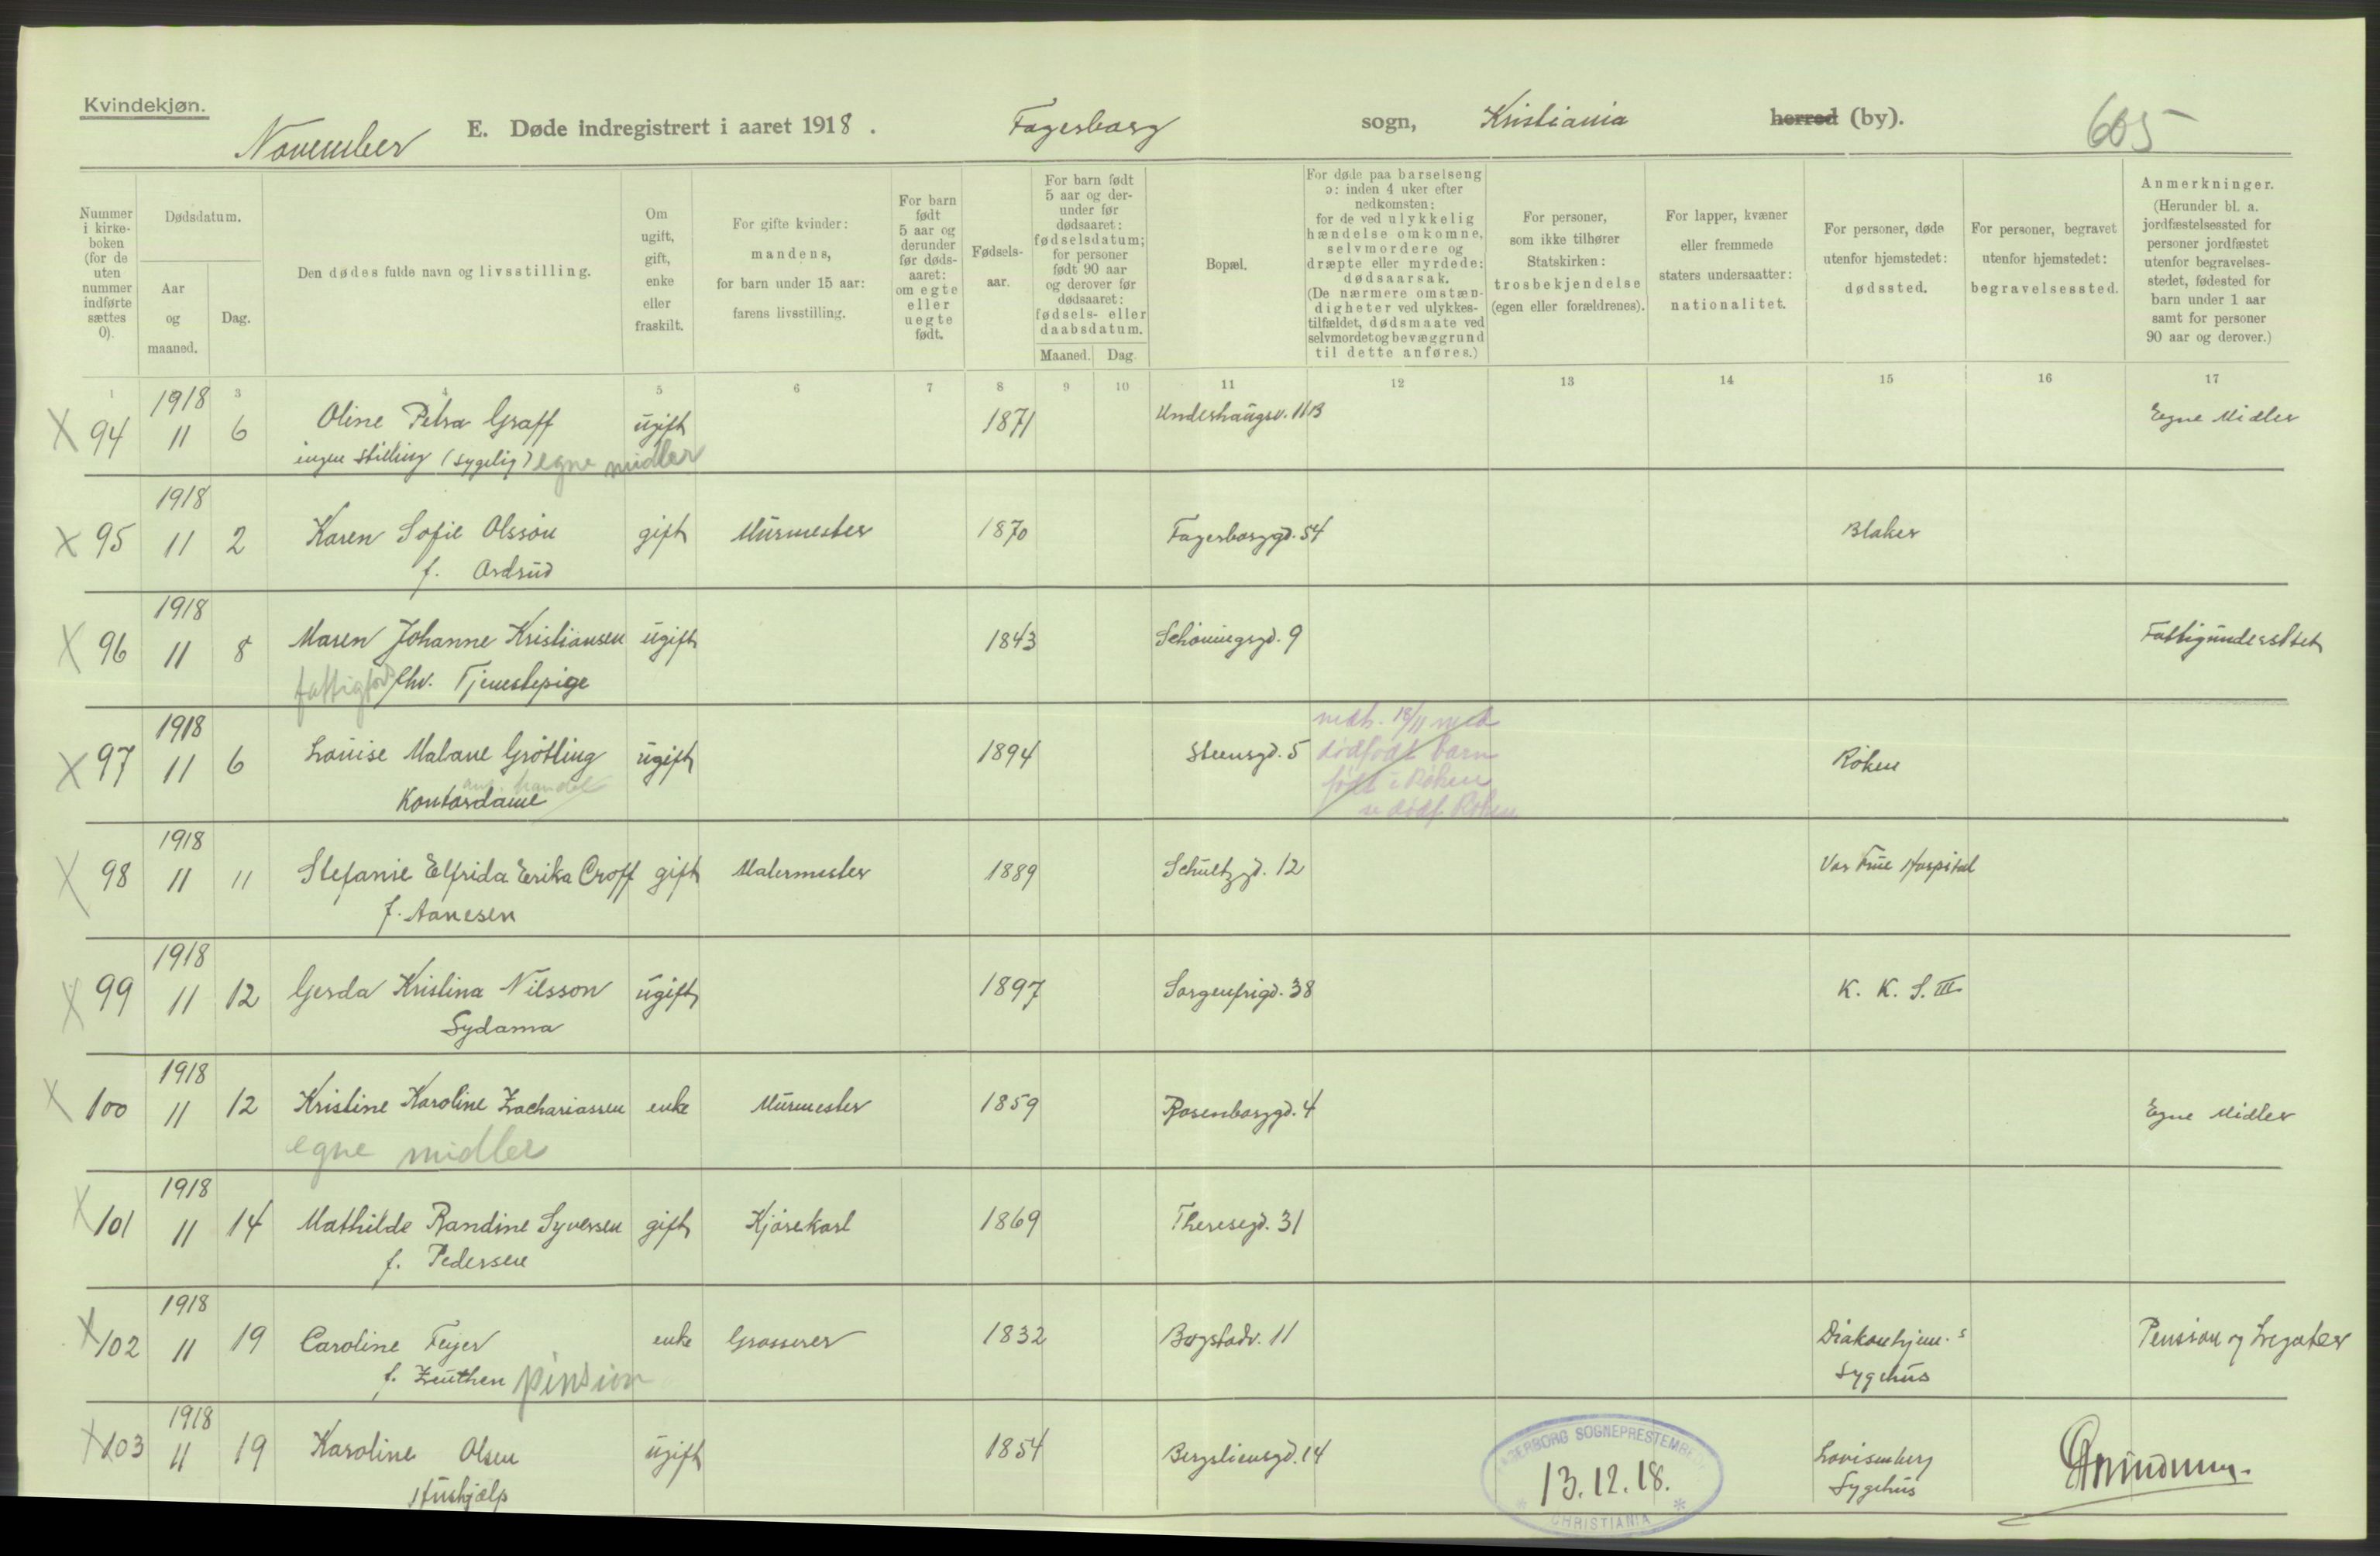 Kvindekjøn.
November E. Døde indregistrert i aaret 1918. Fagerborg sogn, Kristiania herred (by). 605
Nummer i kirke-boken (for de uten nummer indførte sættes 0).
Dødsdatum.
Aar og maaned.
Dag.
Den dødes fulde navn og livsstilling.
Om ugift, gift, enke eller fraskilt.
For gifte kvinder: mandens, for barn under 15 aar: farens livsstilling.
For barn født 5 aar og derunder før døds-aaret: om egte eller uegte født.
Fødsels-aar.
For barn født 5 aar og der-under før dødsaaret: fødselsdatum; for personer født 90 aar og derover før dødsaaret: fødsels- eller daabsdatum.
Maaned. Dag.
Bopæl.
For døde paa barselseng ɔ: inden 4 uker efter nedkomsten; for de ved ulykkelig hændelse omkomne, selvmordere og dræpte eller myrdede: dødsaarsak. (De nærmere omstæn-digheter ved ulykkes-tilfældet, dødsmaate ved selvmordet og bevæggrund til dette anføres.)
For personer, som ikke tilhører Statskirken: trosbekjendelse (egen eller forældrenes).
For lapper, kvæner eller fremmede staters undersaatter: nationalitet.
For personer, døde utenfor hjemstedet: dødssted.
For personer, begravet utenfor hjemstedet: begravelsessted.
Anmerkninger. (Herunder bl. a. jordfæstelsessted for personer jordfæstet utenfor begravelses-stedet, fødested for barn under 1 aar samt for personer 90 aar og derover.)
1 3 4 5 6 7 8 9 10 11 12 13 14 15 16 17
X 94 1918 11 6 Oline Petra Graff ugift 1871 Underhaugsv. 11B Egne Midler
ingen stilling (sygelig) egne midler
X 95 1918 11 2 Karen Sofie Olsson gift Murmester 1870 Fagerborggd. 54 Blaker
f. Ordrud
X 96 1918 11 8 Maren Johanne Kristiansen ugift 1843 Schøningsgd. 9 Fattigunderstøt
fattigfors. fhv. Tjenestepige
X 97 1918 11 6 Louise Malane Grøtling ugift 1894 Steensgd. 5 nedk. 18/11 med dødfødt barn født i Røken Røken
Kontordame
X 98 1918 11 11 Stefanie Elfrida Erika Croff gift Malermester 1889 Schultzgd. 12 Vor Frue Hospital
f. Aanesen
X 99 1918 11 12 Gerda Kristina Nilsson ugift 1897 Sorgenfrigd. 38 K. K. S. III
Sydama
X 100 1918 11 12 Kristine Karoline Zachariassen enke Murmester 1859 Rosenborggd. 4 Egne Midler
egne midler
X 101 1918 11 14 Mathilde Randine Syversen gift Kjørekarl 1869 Theresegd. 31
f. Pedersen
X 102 1918 11 19 Caroline Feyer enke Grosserer 1832 Bogstadv. 11 Diakonhjem.s Sygehus Pension og Legater
f. Zeuthen pension
X 103 1918 11 19 Karoline Olsen ugift 1854 Bergsliensgd. 14 Lovisenberg Sygehus
Hushjælp
FAGERBORG SOGNEPRESTEMBEDE
13.12.18.
CHRISTIANIA